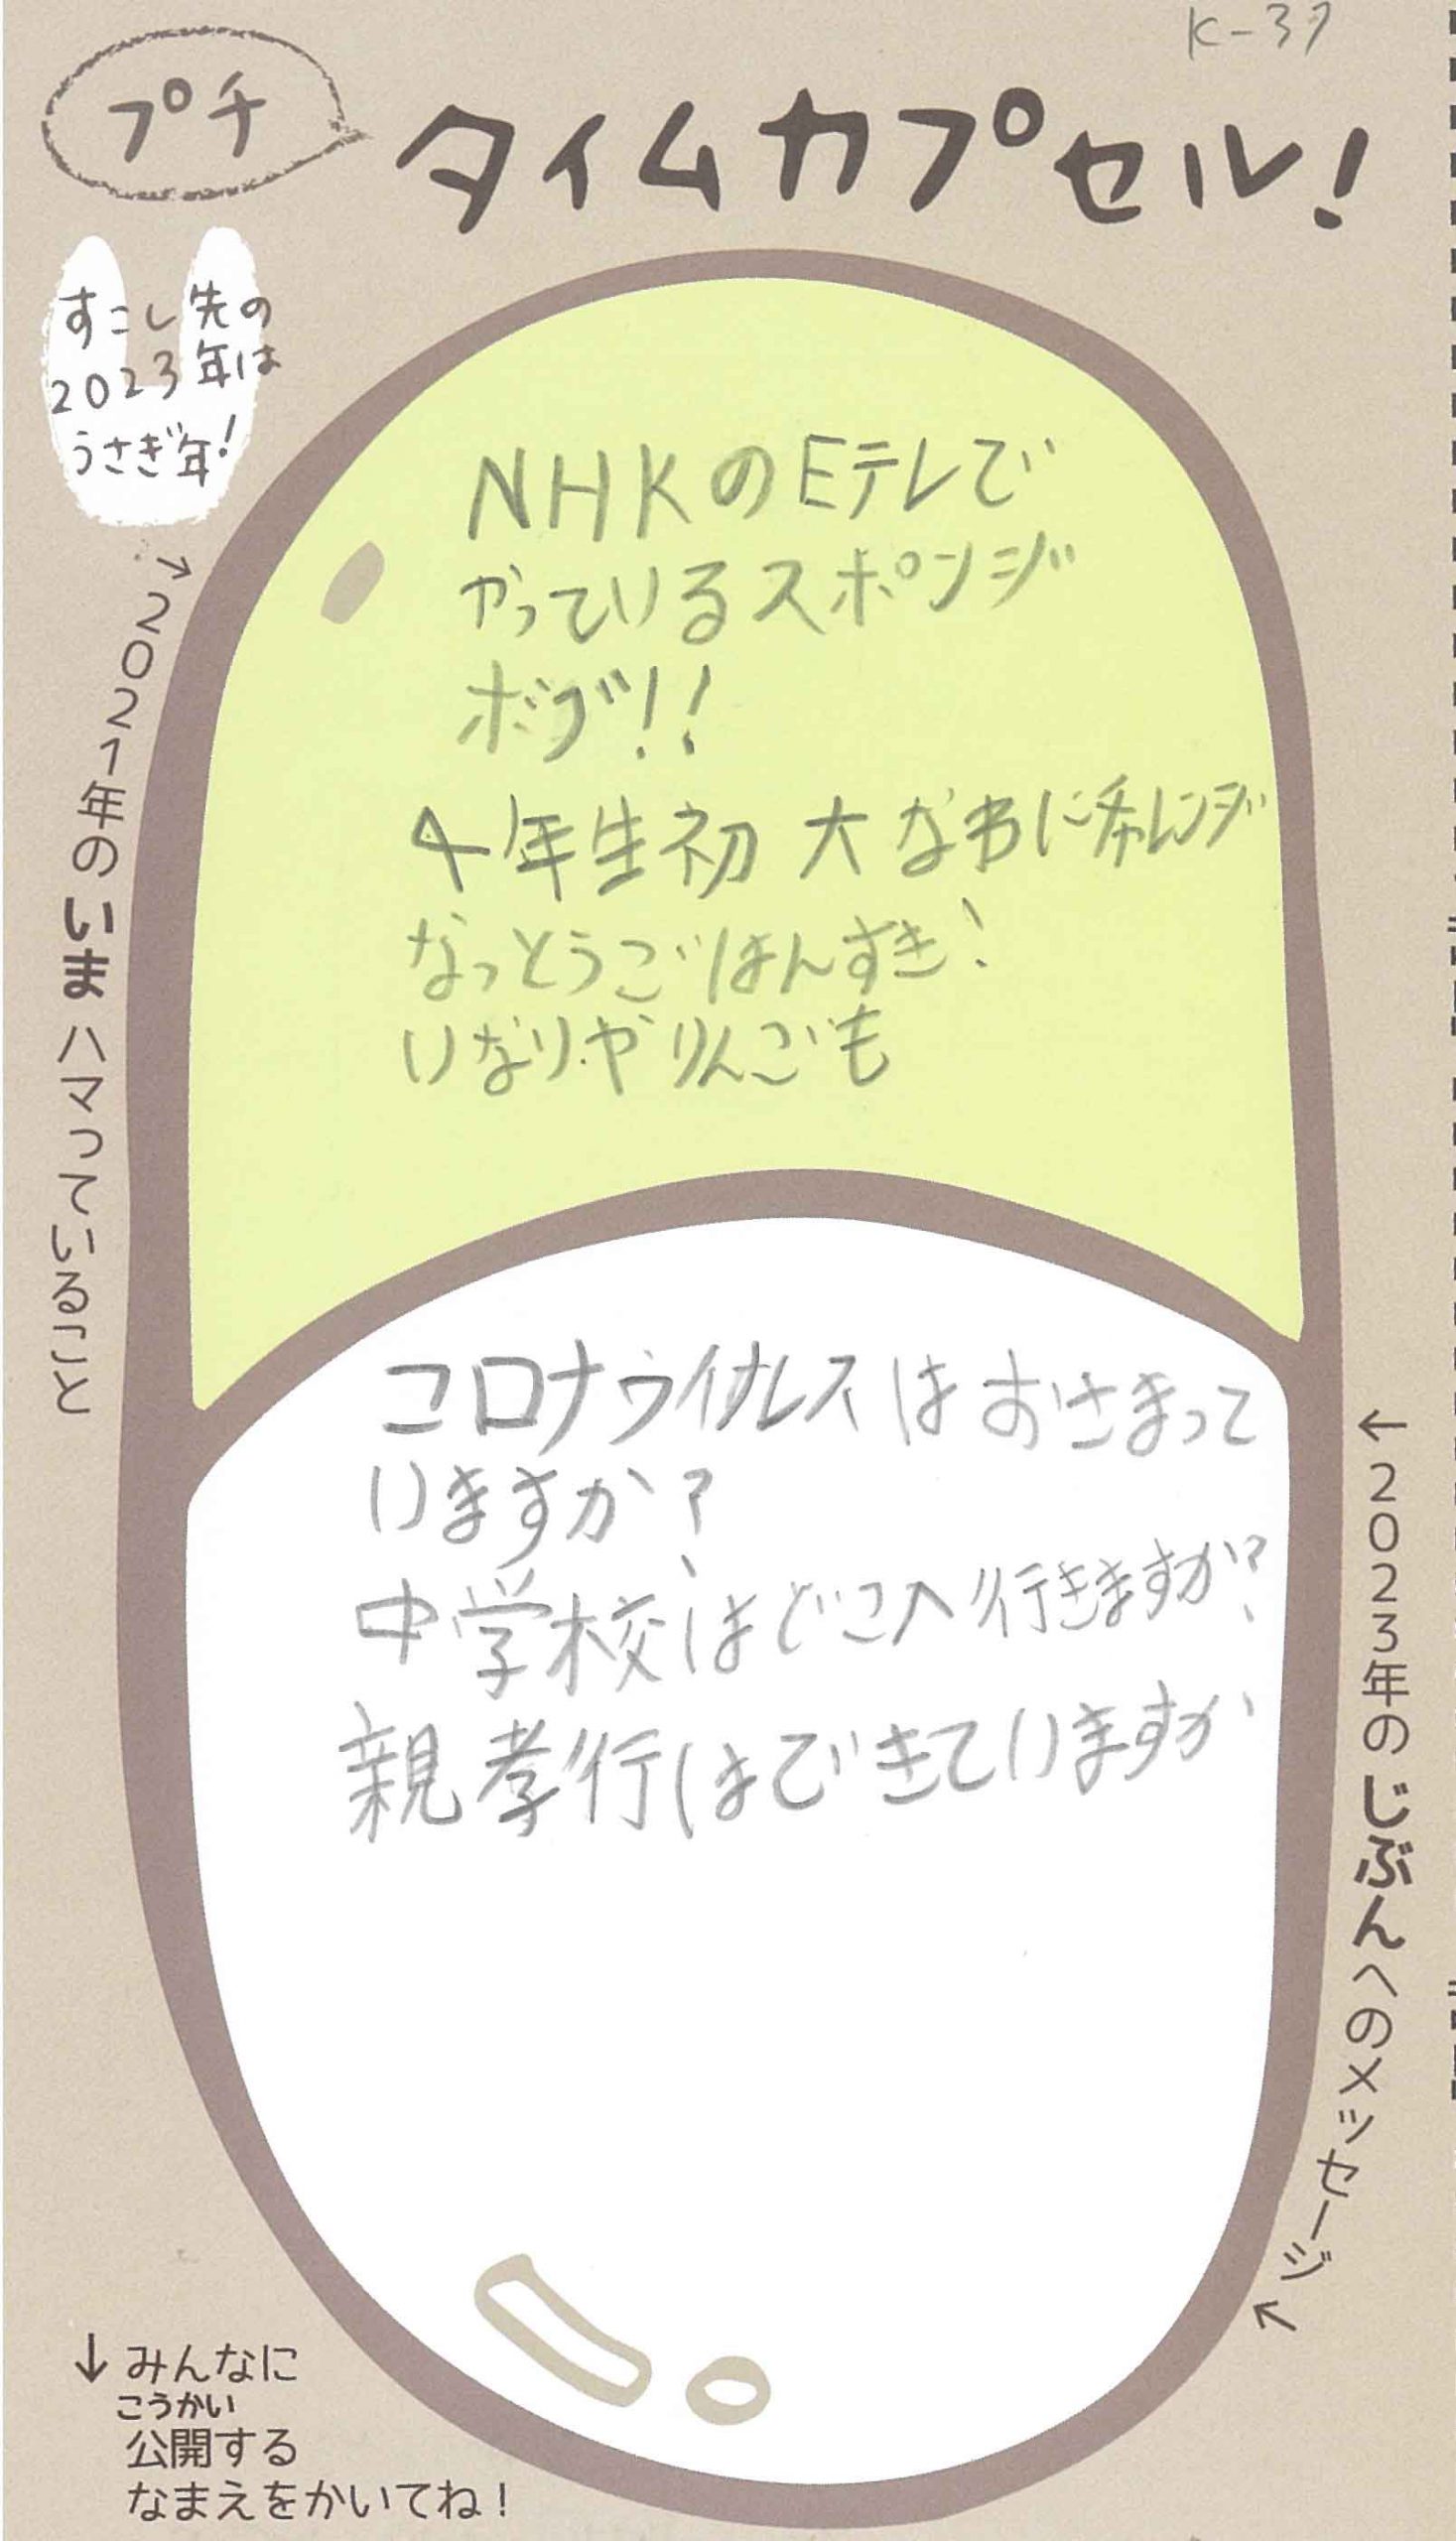 K-37
プチ
タイムカプセル!
すこし先の
2023年は
うさぎ年!
→2021年のいまハマっていること
NHKのEテレで
やっているスポンジ
ボブ!!
4年生初 大なわにチャレンジ
なっとうごはんすき!
いなりやりんごも
←2023年のじぶんへのメッセージ↑
コロナウイルスはおさまって
いますか?
中学校はどこへ行きますか?
親孝行はできていますか
↓みんなに
こうかい
公開する
なまえをかいてね!